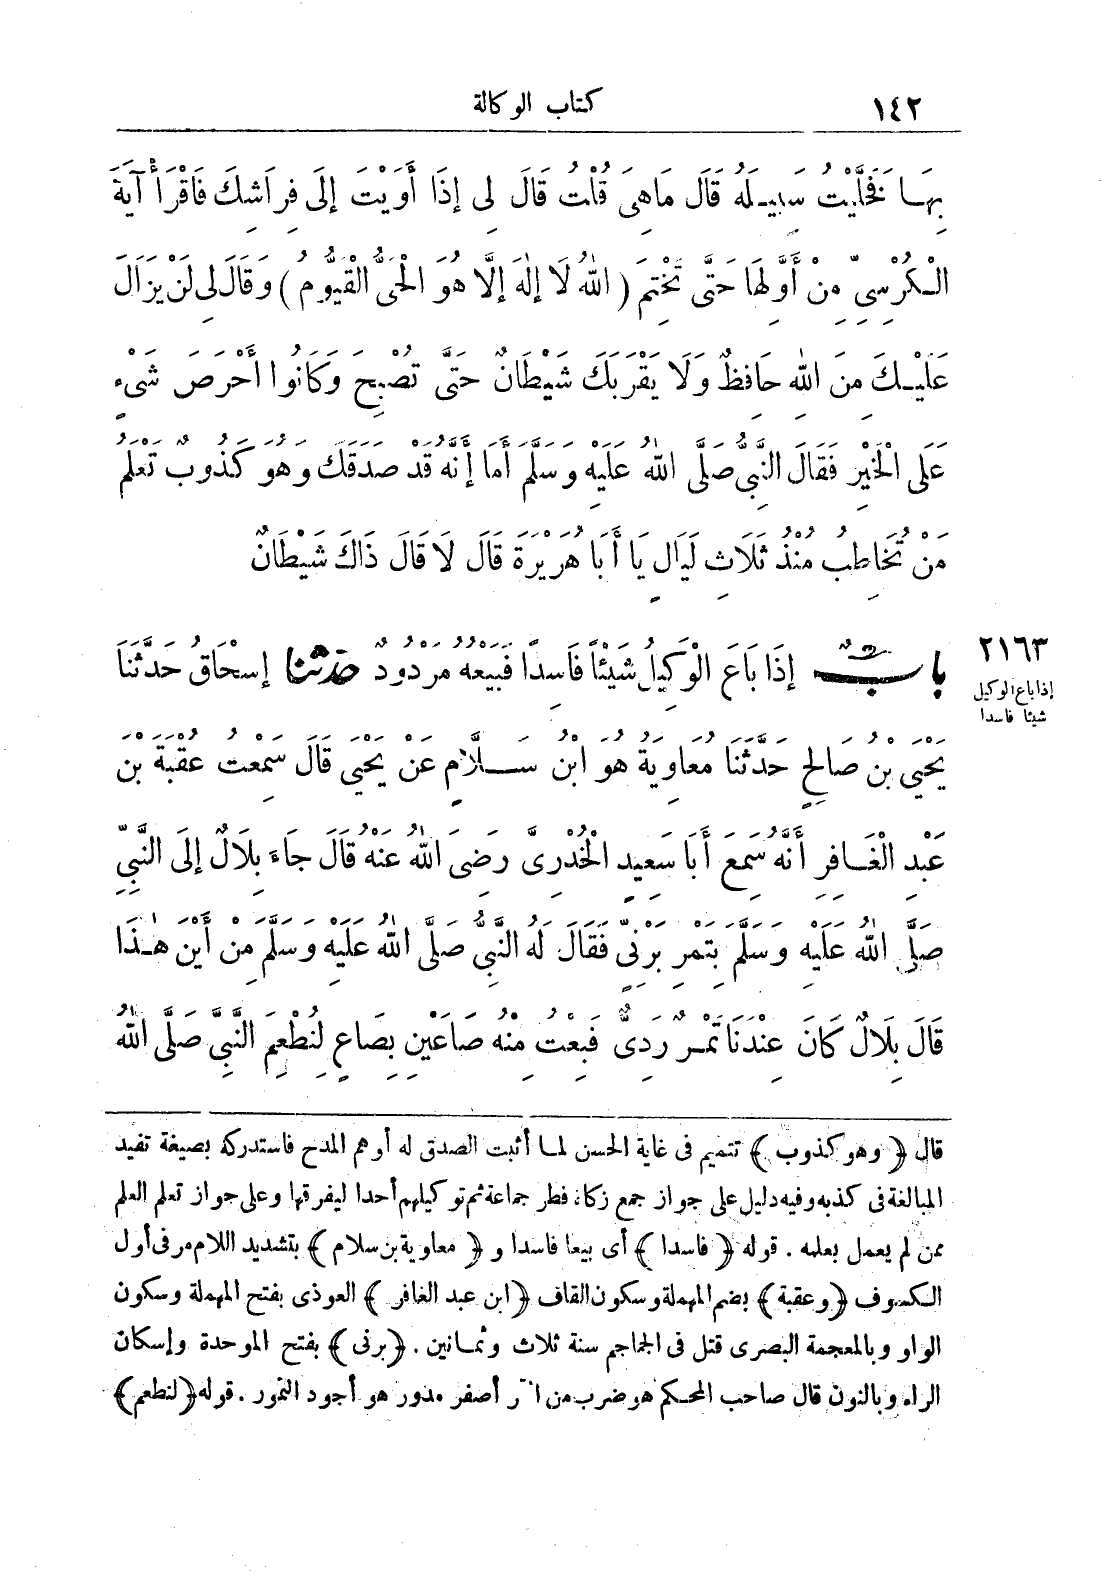 ١٤٢ كتاب الوكالة
بِهَا فَخَلَّيْتُ سَبِيلَهُ قَالَ مَا هِيَ قُلْتُ قَالَ لِي إِذَا أَوَيْتَ إِلَى فِرَاشِكَ فَاقْرَأْ آيَةَ
الْكُرْسِيِّ مِنْ أَوَّلِهَا حَتَّى تَخْتِمَ ( اللهُ لَا إِلٰهَ إِلَّا هُوَ الْحَيُّ الْقَيُّومُ ) وَقَالَ لِي لَنْ يَزَالَ
عَلَيْكَ مِنَ اللهِ حَافِظٌ وَلَا يَقْرَبَكَ شَيْطَانٌ حَتَّى تُصْبِحَ وَكَانُوا أَحْرَصَ شَيْءٍ
عَلَى الْخَيْرِ فَقَالَ النَّبِيُّ صَلَّى اللهُ عَلَيْهِ وَسَلَّمَ أَمَا إِنَّهُ قَدْ صَدَقَكَ وَهُوَ كَذُوبٌ تَعْلَمُ
مَنْ تُخَاطِبُ مُنْذُ ثَلَاثِ لَيَالٍ يَا أَبَا هُرَيْرَةَ قَالَ لَا قَالَ ذَاكَ شَيْطَانٌ
بابٌ إِذَا بَاعَ الْوَكِيلُ شَيْئًا فَاسِدًا فَبَيْعُهُ مَرْدُودٌ حدثنا إِسْحَاقُ حَدَّثَنَا
٢١٦٣
إذا باع الوكيل
شيئا فاسدا
يَحْيَى بْنُ صَالِحٍ حَدَّثَنَا مُعَاوِيَةُ هُوَ ابْنُ سَلَّامٍ عَنْ يَحْيَى قَالَ سَمِعْتُ عُقْبَةَ بْنَ
عَبْدِ الْغَافِرِ أَنَّهُ سَمِعَ أَبَا سَعِيدٍ الْخُدْرِيَّ رَضِيَ اللهُ عَنْهُ قَالَ جَاءَ بِلَالٌ إِلَى النَّبِيِّ
صَلَّى اللهُ عَلَيْهِ وَسَلَّمَ بِتَمْرٍ بَرْنِيٍّ فَقَالَ لَهُ النَّبِيُّ صَلَّى اللهُ عَلَيْهِ وَسَلَّمَ مِنْ أَيْنَ هٰذَا
قَالَ بِلَالٌ كَانَ عِنْدَنَا تَمْرٌ رَدِيٌّ فَبِعْتُ مِنْهُ صَاعَيْنِ بِصَاعٍ لِنُطْعِمَ النَّبِيَّ صَلَّى اللهُ
قال ﴿ وهو كذوب ﴾ تتميم في غاية الحسن لما أثبت الصدق له أوهم المدح فاستدركه بصيغة تفيد
المبالغة في كذبه وفيه دليل على جواز جمع زكاة فطر جماعة ثم توكيلهم أحدا ليفرقها وعلى جواز تعلم العلم
ممن لم يعمل بعلمه . قوله ﴿ فاسدا ﴾ أي بيعا فاسدا و ﴿ معاوية بن سلام ﴾ بتشديد اللام مر في أول
الكسوف ﴿ وعقبة ﴾ بضم المهملة وسكون القاف ﴿ ابن عبد الغافر ﴾ العوذي بفتح المهملة وسكون
الواو وبالمعجمة البصري قتل في الجماجم سنة ثلاث وثمانين . ﴿ برني ﴾ بفتح الموحدة وإسكان
الراء وبالنون قال صاحب المحكم هو ضرب من أصفر مدور هو أجود التمور . قوله ﴿ لنطعم ﴾